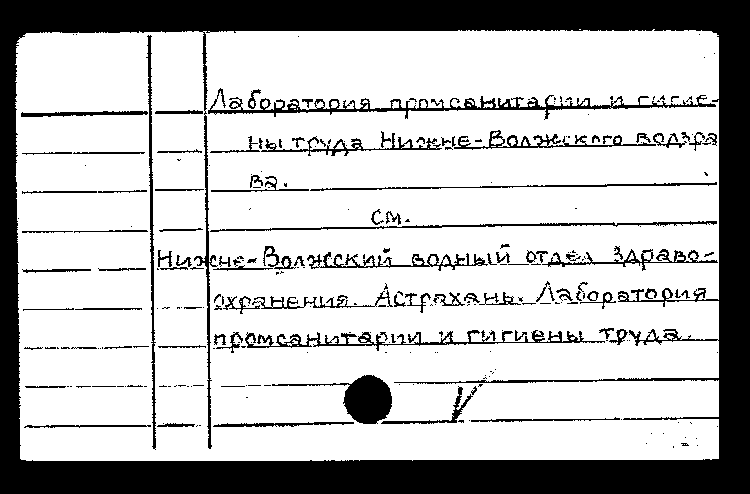 Лаборатория промсанитарии и гигие-
ны труда Нижне-Волжского водзра
ва.
см.
Нижне-Волжский водный отдел здраво-
охранения. Астрахань. Лаборатория
промсанитарии и гигиены труда.